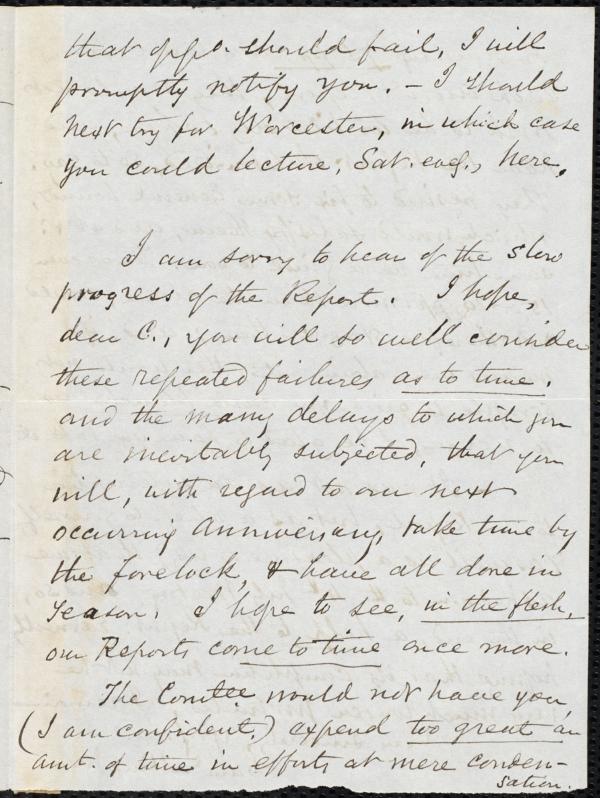 that oppo. should fail, I will
promptly notify you. – I should
next try for Worcester, in which case
you could lecture, Sat. evg., here.
I am sorry to hear of the slow
progress of the Report. I hope,
dear C., you will so well consider
these repeated failures as to time,
and the many delays to which you
are inevitably subjected, that you
will, with regard to our next
occurring Anniversary, take time by
the forelock, & have all done in
season. I hope to see, in the flesh,
our Reports come to time once more.
The Comtee would not have you,
(I am confident,) expend too great an
amt. of time in efforts at mere conden-
sation.